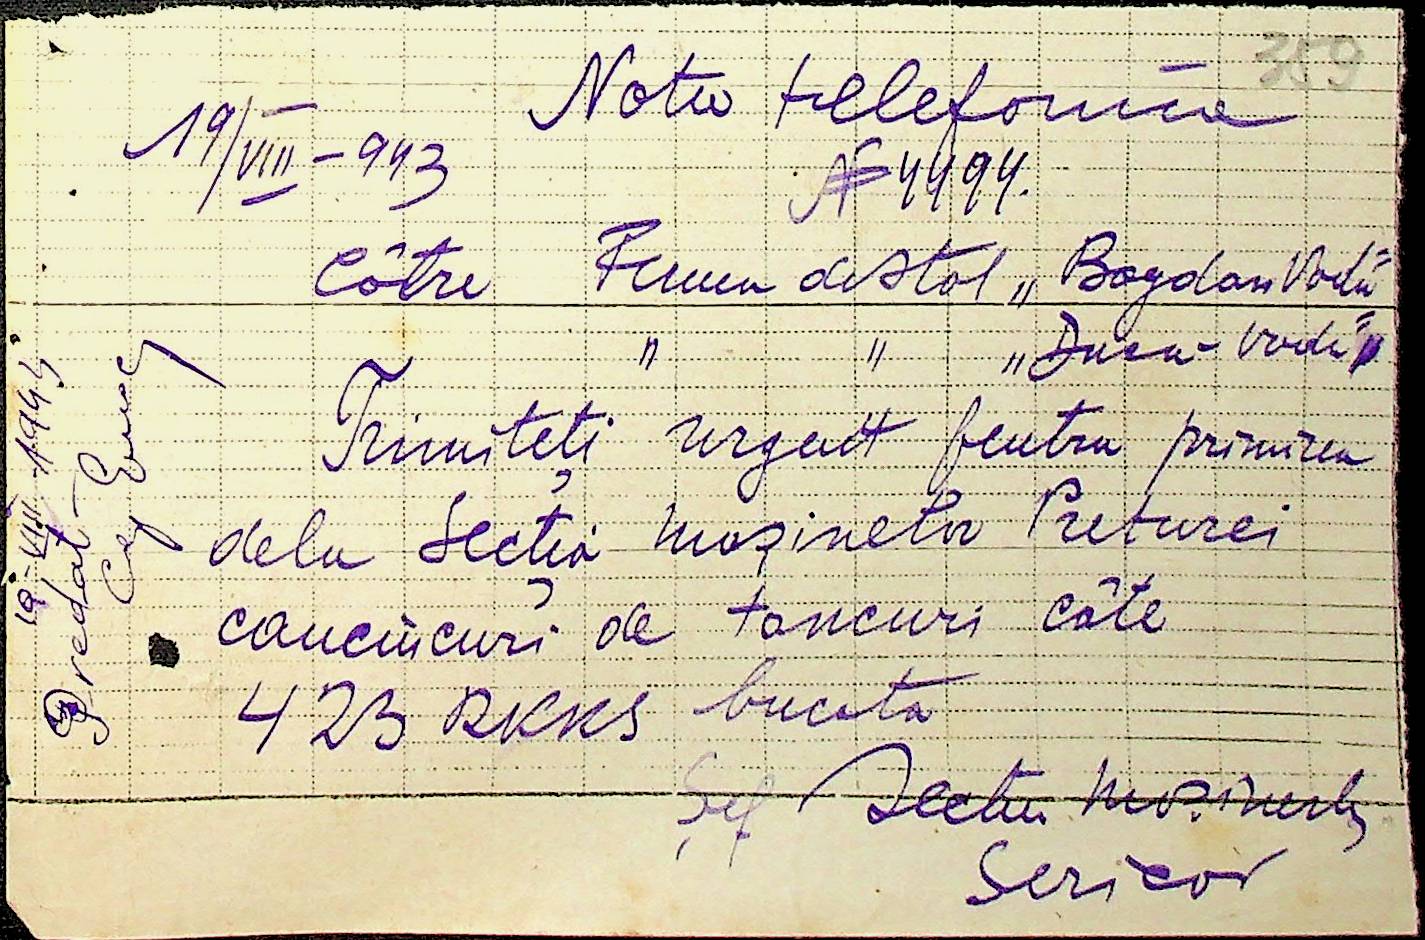 359
Nota telefonica
19/VIII-943
№ 4494.
Cãtre Ferma de Stat „Bogdan Vodă"
" " „Duca-Vodă"
Trimiteți urgent pentru primirea
dela Secția mașinelor Preturei
cauciucuri de tancuri câte
423 RKKS bucata
Șef Secției Mașinelor
19-VIII-1943
Predat